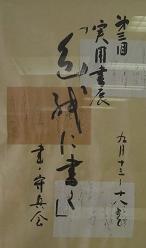 第三回
実用書展
「色紙に書く」
九月十三~十八日
書・守真会